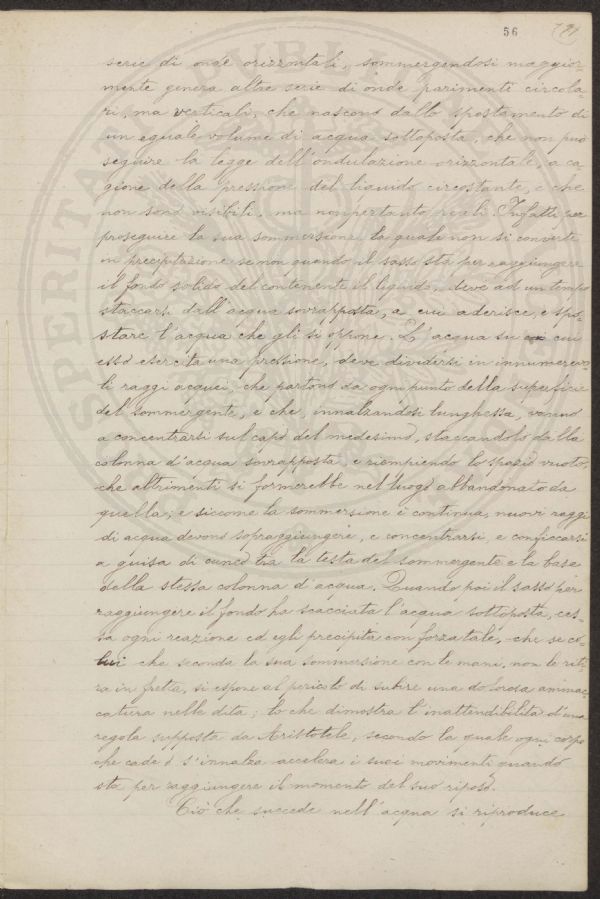 56
serie di onde orizzontali, sommergendosi maggior-
mente genera altre serie di onde parimenti circola-
ri, ma verticali, che nascono dallo spostamento di
un eguale volume di acqua sottoposta, che non può
seguire la legge dell'ondulazione orizzontale, a ca-
gione della pressione del liquido circostante, e che
non sono visibili, ma nonpertanto reali. Infatti per
proseguire la sua sommersione la quale non si converte
in precipitazione se non quando il sasso sta per raggiungere
il fondo solido del contenente il liquido, deve ad un tempo
staccarsi dall'acqua sovrapposta, a cui aderisce, e spo-
stare l'acqua che gli si oppone. L'acqua su cui
esso esercita una pressione, deve dividersi in innumerevo-
li raggi acquei, che partono da ogni punto della superficie
del sommergente, e che, innalzandosi lunghessa, vanno
a concentrarsi sul capo del medesimo, staccandolo dalla
colonna d'acqua sovrapposta, e riempiendo lo spazio vuoto,
che altrimenti si formerebbe nel luogo abbandonato da
quella; e siccome la sommersione è continua, nuovi raggi
di acqua devono sopraggiungere, e concentrarsi, e conficcarsi
a guisa di cuneo tra la testa del sommergente e la base
della stessa colonna d'acqua. Quando poi il sasso per
raggiungere il fondo ha scacciata l'acqua sottoposta, ces-
sa ogni reazione ed egli precipita con forza tale, che se co-
lui che seconda la sua sommersione con le mani, non le riti-
ra in fretta, si espone al pericolo di subire una dolorosa ammac-
catura nelle dita; lo che dimostra l'inattendibilità d'una
regola supposta da Aristotele, secondo la quale ogni corpo
che cade o s'innalza accelera i suoi movimenti quando
sta per raggiungere il momento del suo riposo.
Ciò che succede nell'acqua si riproduce